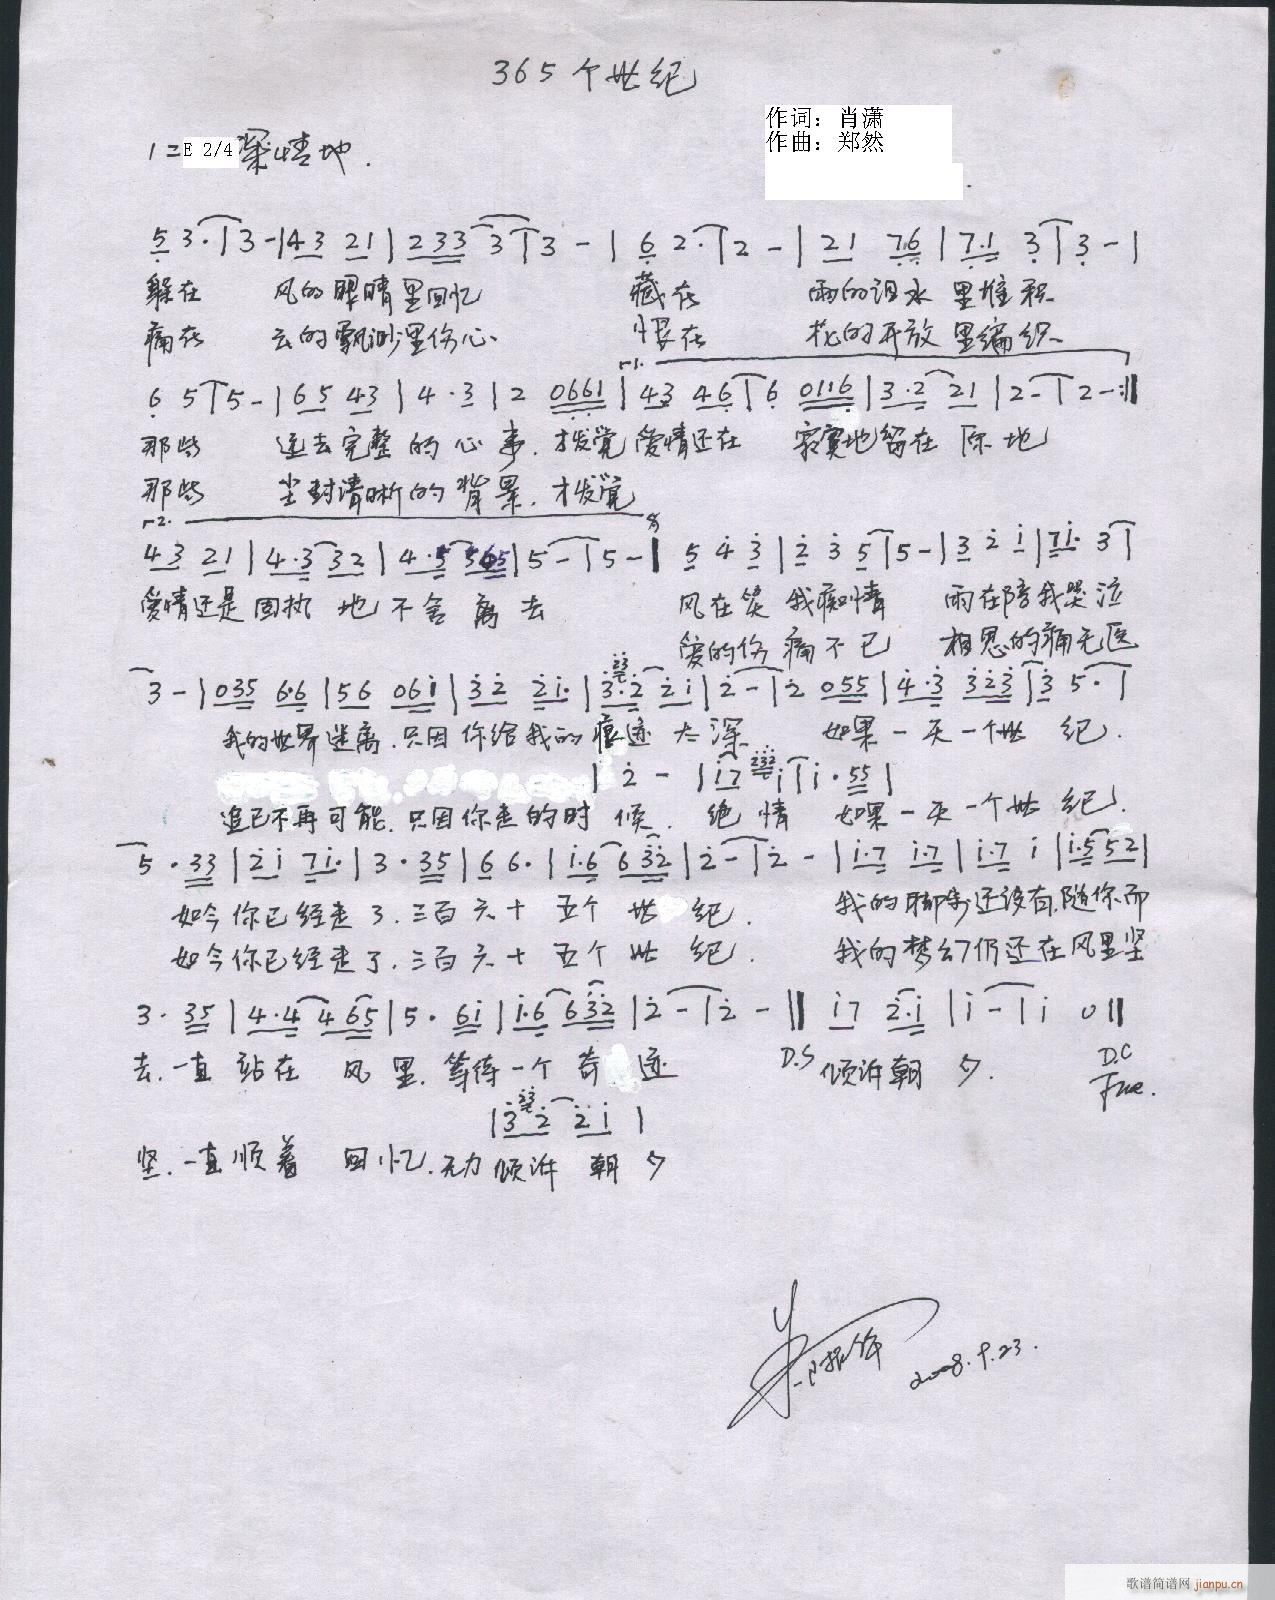 365个世纪
作词：肖潇
作曲：郑然
1=E 2/4 深情地.
5 3·|3-|43 21|233 3|3 -|6 2·|2 -|21 76|7·1 3|3 -|
躲在 风的眼睛里回忆 藏在 雨的泪水里堆积
痛在 云的飘渺里伤心 恨在 花的开放里编织
1.
6 5|5 -|65 43|4·3|2 0661|43 46|6 0116|3·2 21|2 -|2 -:‖
那些 逝去完整的心事.才发觉爱情还在 寂寞地留在原地
那些 尘封清晰的背景.才发觉
2.
43 21|4·3 32|4·5 565|5 -|5 -‖ 5 4 3|2 3 5|5 -|3 2 1|71· 3|
爱情还是固执地不舍离去 风在笑我痴情 雨在陪我哭泣
爱的伤痛不已 相思的痛无医
3 -|035 6·6|56 061|32 21·|3·2 21|2 -|2 055|4·3 323|3 5·|
我的世界迷离.只因你给我的痕迹太深 如果一天一个世纪.
|2 -|17 232 1|1·55|
追已不再可能.只因你走的时候.绝情 如果一天一个世纪.
5·33|21 71·|3·35|6 6·|1·6 632|2 -|2 -|1·7 1·7|1·7 1|1·5 52|
如今你已经走了.三百六十五个世纪. 我的脚步还没有随你而
如今你已经走了.三百六十五个世纪. 我的梦幻仍还在风里坚
3·35|4·4 465|5·61|1·6 632|2 -|2 -‖17 2·1|1 -|1 0‖
去.一直站在风里.等待一个奇迹 D.S 倾诉朝夕. D.C
Fine.
|3 2 21|
坚.一直顺着回忆.无力倾诉朝夕
2008.9.23.
歌谱简谱网 jianpu.cn